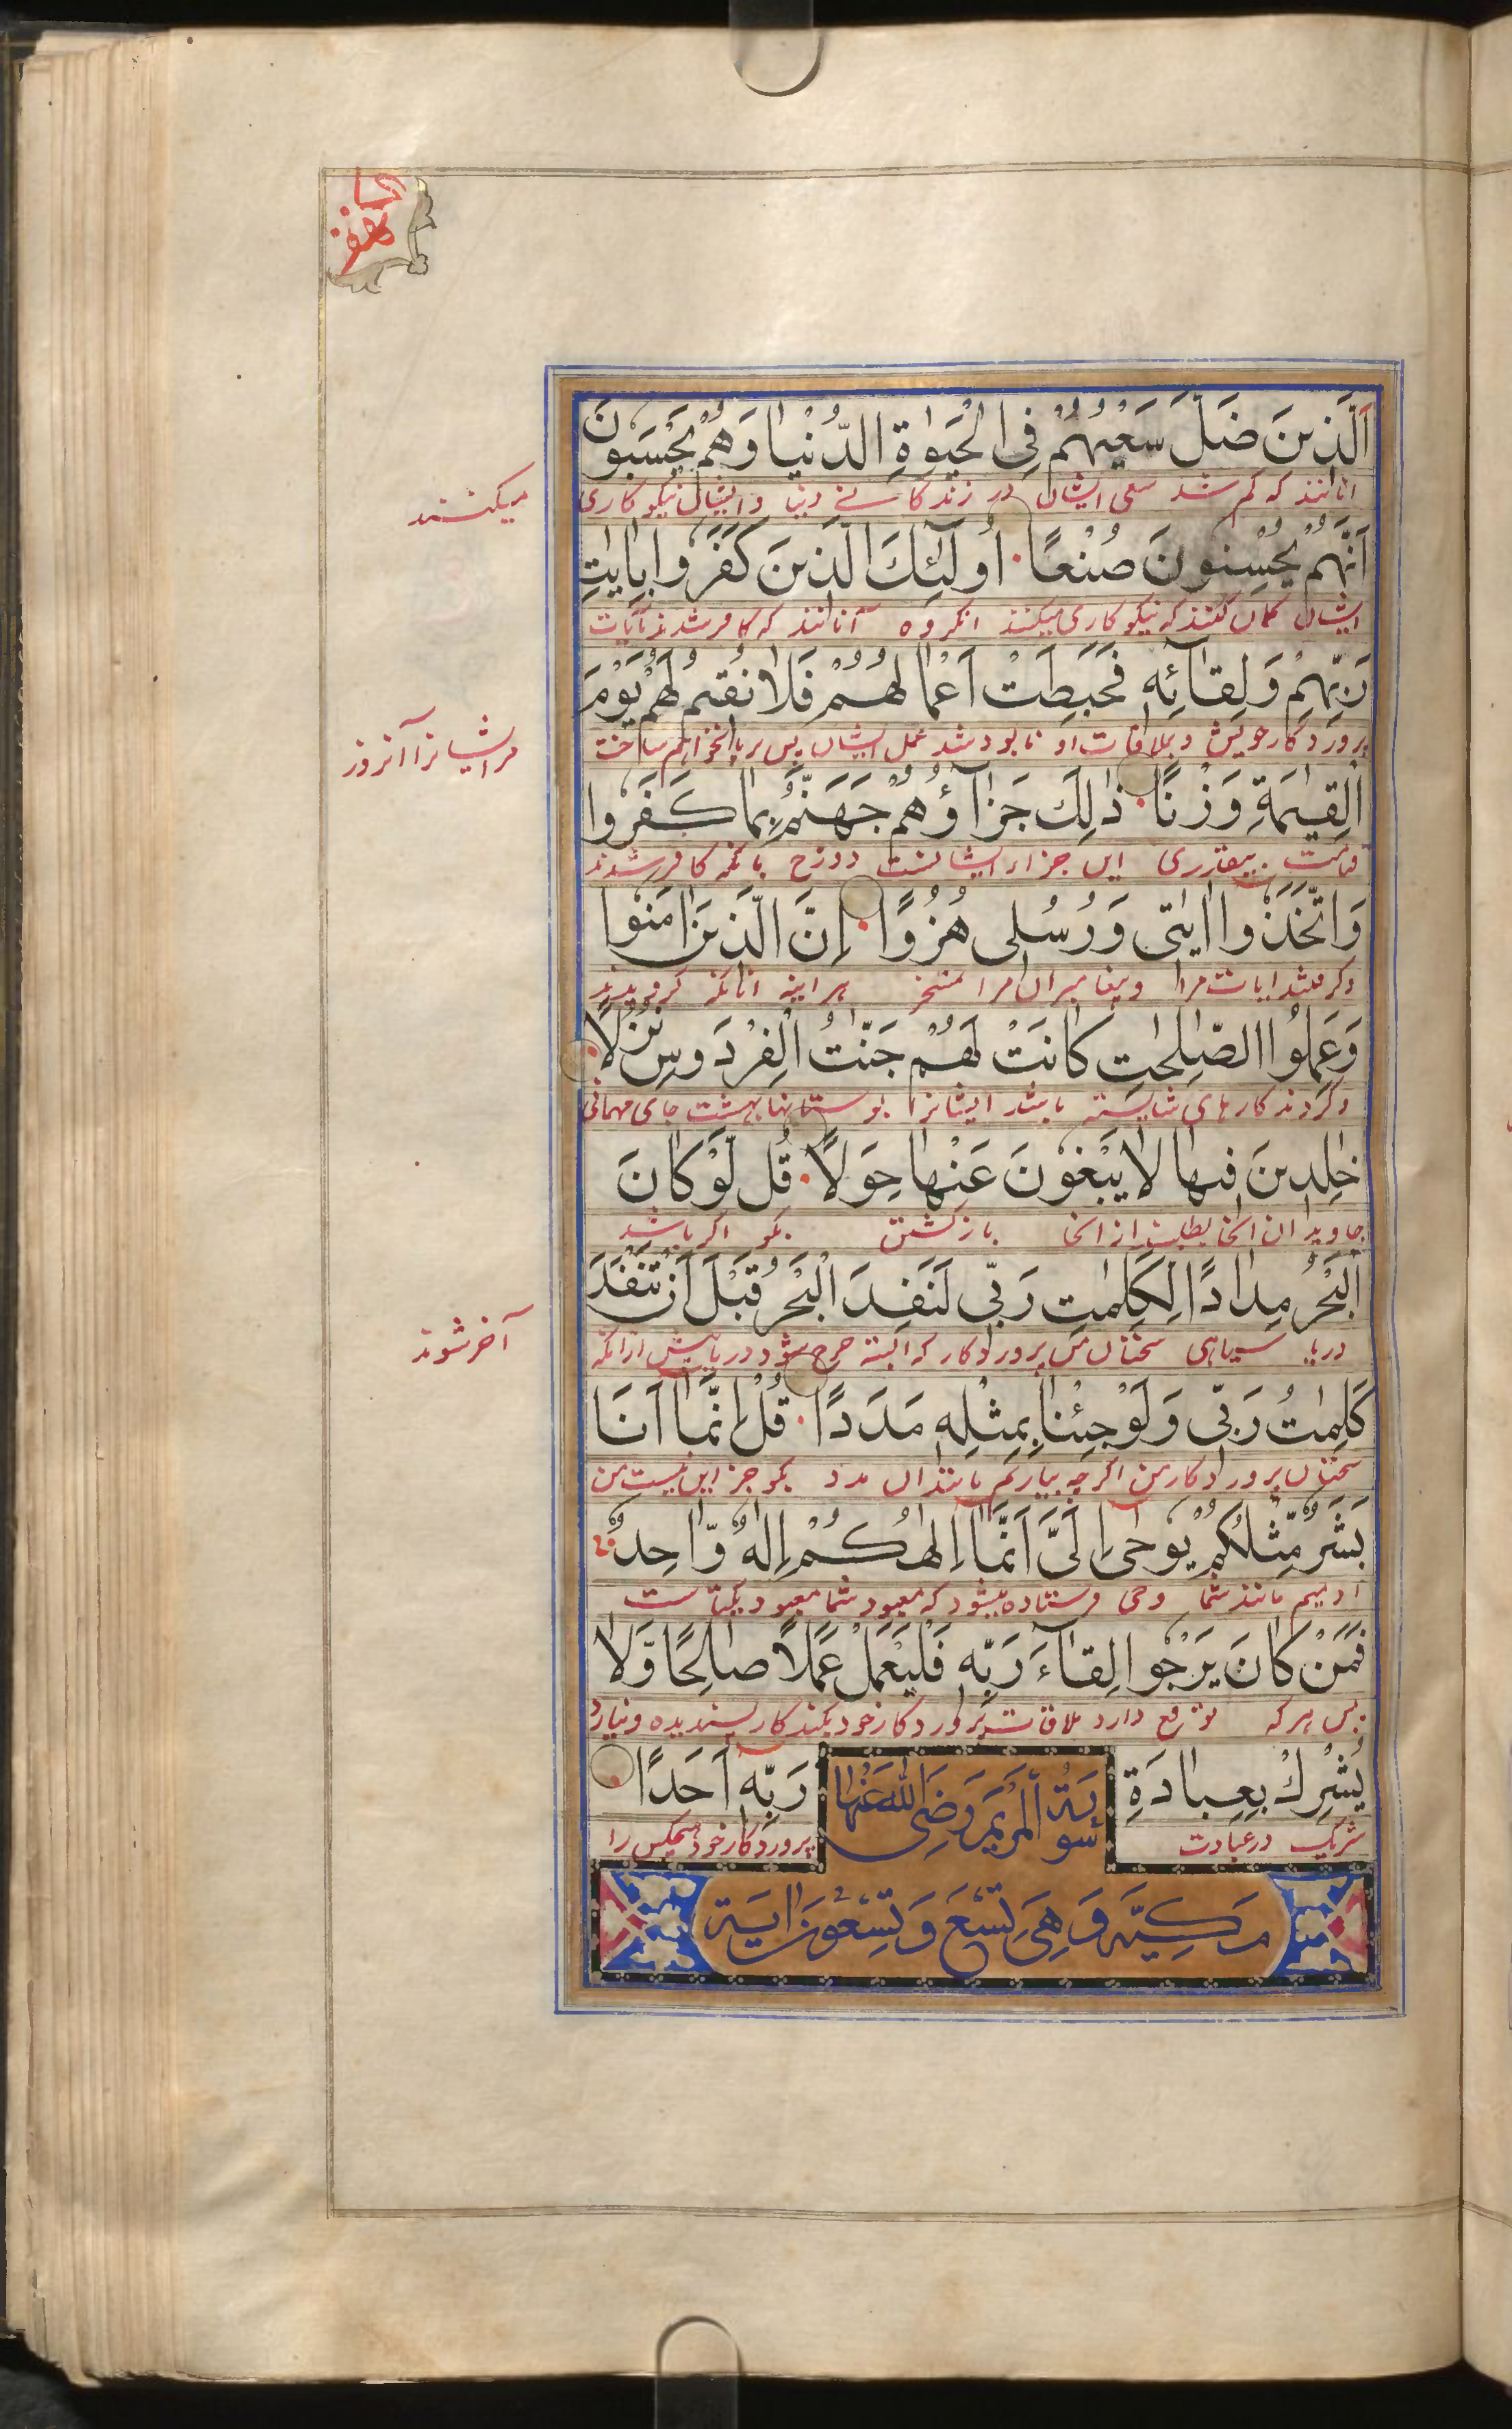 الكهف
اَلَّذِينَ ضَلَّ سَعْيُهُمْ فِى الْحَيٰوةِ الدُّنْيَا وَهُمْ يَحْسَبُونَ
انانند که کم شد سعی ایشان در زندکانے دنیا و ایشان نیکو کاری
میکنند
اَنَّهُمْ يُحْسِنُونَ صُنْعًا اُولٰٓئِكَ الَّذِينَ كَفَرُوا بِاٰيٰتِ
ایشان کمان کنند که نیکو کاری میکنند انکروه آنانند که کافر شدند بآیات
رَبِّهِمْ وَلِقَآئِهٖ فَحَبِطَتْ اَعْمَالُهُمْ فَلَا نُقِيمُ لَهُمْ يَوْمَ
پروردکار خویش و بملاقات او نابود شد عمل ایشان پس برپا نخواهم ساخت
مر ایشانرا آنروز
الْقِيٰمَةِ وَزْنًا ذٰلِكَ جَزَآؤُهُمْ جَهَنَّمُ بِمَا كَفَرُوا
قیامت بیقدری این جزاء ایشانست دوزخ بانکه کافر شدند
وَاتَّخَذُوا اٰيٰتِى وَرُسُلِى هُزُوًا اِنَّ الَّذِينَ اٰمَنُوا
وکرفتند ایات مرا وپیغامبران مرا تمسخر هر اینه انانکه کرویدند
وَعَمِلُوا الصّٰلِحٰتِ كَانَتْ لَهُمْ جَنّٰتُ الْفِرْدَوْسِ نُزُلًا
وکردند کارهای شایسته باشد ایشانرا بوستانها بهشت جای مهمانی
خٰلِدِينَ فِيهَا لَا يَبْغُونَ عَنْهَا حِوَلًا قُل لَّوْ كَانَ
جاویدان انجا نطلبند از انجا بازکشتن بکو اکر باشد
الْبَحْرُ مِدَادًا لِكَلِمٰتِ رَبِّى لَنَفِدَ الْبَحْرُ قَبْلَ اَنْ تَنْفَدَ
دریا سیاهی سخنان من پروردکار که البته خرج شود دریا پیش ازانکه
آخر شوند
كَلِمٰتُ رَبِّى وَلَوْ جِئْنَا بِمِثْلِهٖ مَدَدًا قُلْ اِنَّمَا اَنَا
سخنان پروردکار من اکرچه بیاریم مانند ان مدد بکو جز این نیست من
بَشَرٌ مِّثْلُكُمْ يُوحٰى اِلَىَّ اَنَّمَا اِلٰهُكُمْ اِلٰهٌ وَّاحِدٌ
آدمیم مانند شما وحی فرستاده میشود که معبود شما معبود یکتاست
فَمَنْ كَانَ يَرْجُوا لِقَآءَ رَبِّهٖ فَلْيَعْمَلْ عَمَلًا صَالِحًا وَّلَا
پس هرکه توقع دارد ملاقات پروردکار خود بکند کار پسندیده ونیارد
يُشْرِكْ بِعِبَادَةِ رَبِّهٖ اَحَدًا
شریک در عبادت پروردکار خود هیچکس را
سُورَة الْمَرْيَم رَضِىَ اللهُ عَنْهَا
مَكِيَّة وَهِىَ تِسْعَ وَتِسْعُونَ اٰيَة